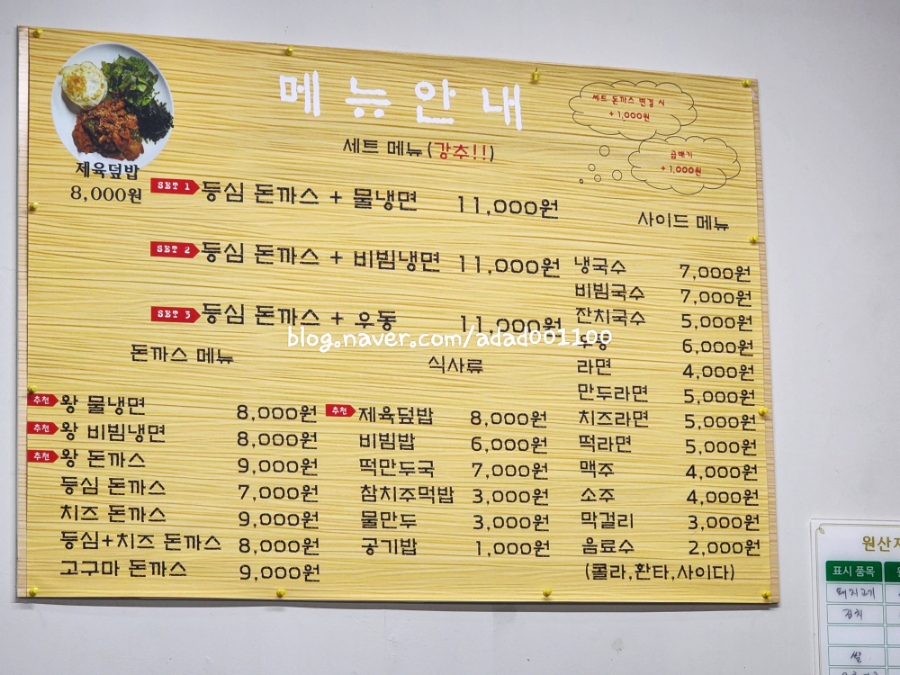 메뉴안내
세트 돈까스 변경 시
+1,000원
곱빼기
+1,000원
제육덮밥
8,000원
세트 메뉴(강추!!)
SET 1 등심 돈까스 + 물냉면 11,000원
SET 2 등심 돈까스 + 비빔냉면 11,000원
SET 3 등심 돈까스 + 우동 11,000원
blog.naver.com/adad001100
돈까스 메뉴
추천 왕 물냉면 8,000원
추천 왕 비빔냉면 8,000원
추천 왕 돈까스 9,000원
등심 돈까스 7,000원
치즈 돈까스 9,000원
등심+치즈 돈까스 8,000원
고구마 돈까스 9,000원
식사류
추천 제육덮밥 8,000원
비빔밥 6,000원
떡만두국 7,000원
참치주먹밥 3,000원
물만두 3,000원
공기밥 1,000원
사이드 메뉴
냉국수 7,000원
비빔국수 7,000원
잔치국수 5,000원
우동 6,000원
라면 4,000원
만두라면 5,000원
치즈라면 5,000원
떡라면 5,000원
맥주 4,000원
소주 4,000원
막걸리 3,000원
음료수 2,000원
(콜라,환타,사이다)
원산지
표시 품목
돼지고기
김치
쌀